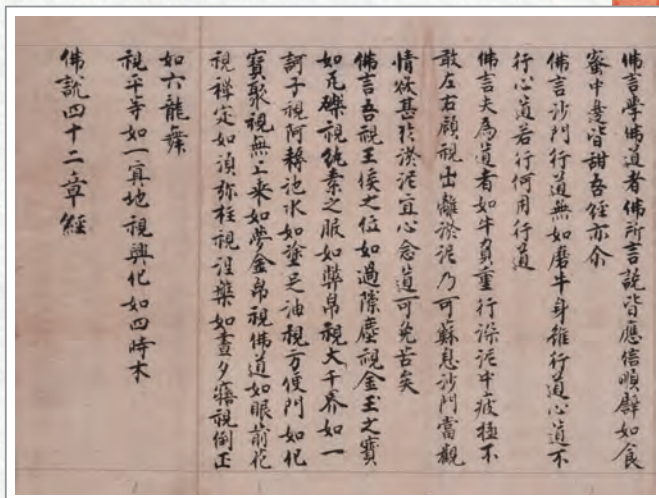 佛言學佛道者佛所言說皆應信順譬如食
蜜中邊皆甜吾經亦尒
佛言沙門行道無如磨牛身雖行道心道不
行心道若行何用行道
佛言夫為道者如牛負重行深泥中疲極不
敢左右顧視出離淤泥乃可蘇息沙門當觀
情欲甚於淤泥直心念道可免苦矣
佛言吾視王侯之位如過隙塵視金玉之寶
如瓦礫視紈素之服如弊帛視大千界如一
訶子視阿耨池水如塗足油視方便門如化
寶聚視無上乘如夢金帛視佛道如眼前花
視禪定如須弥柱視涅槃如晝夕寤視倒正
如六龍舞
視平等如一真地視興化如四時木
佛說四十二章經